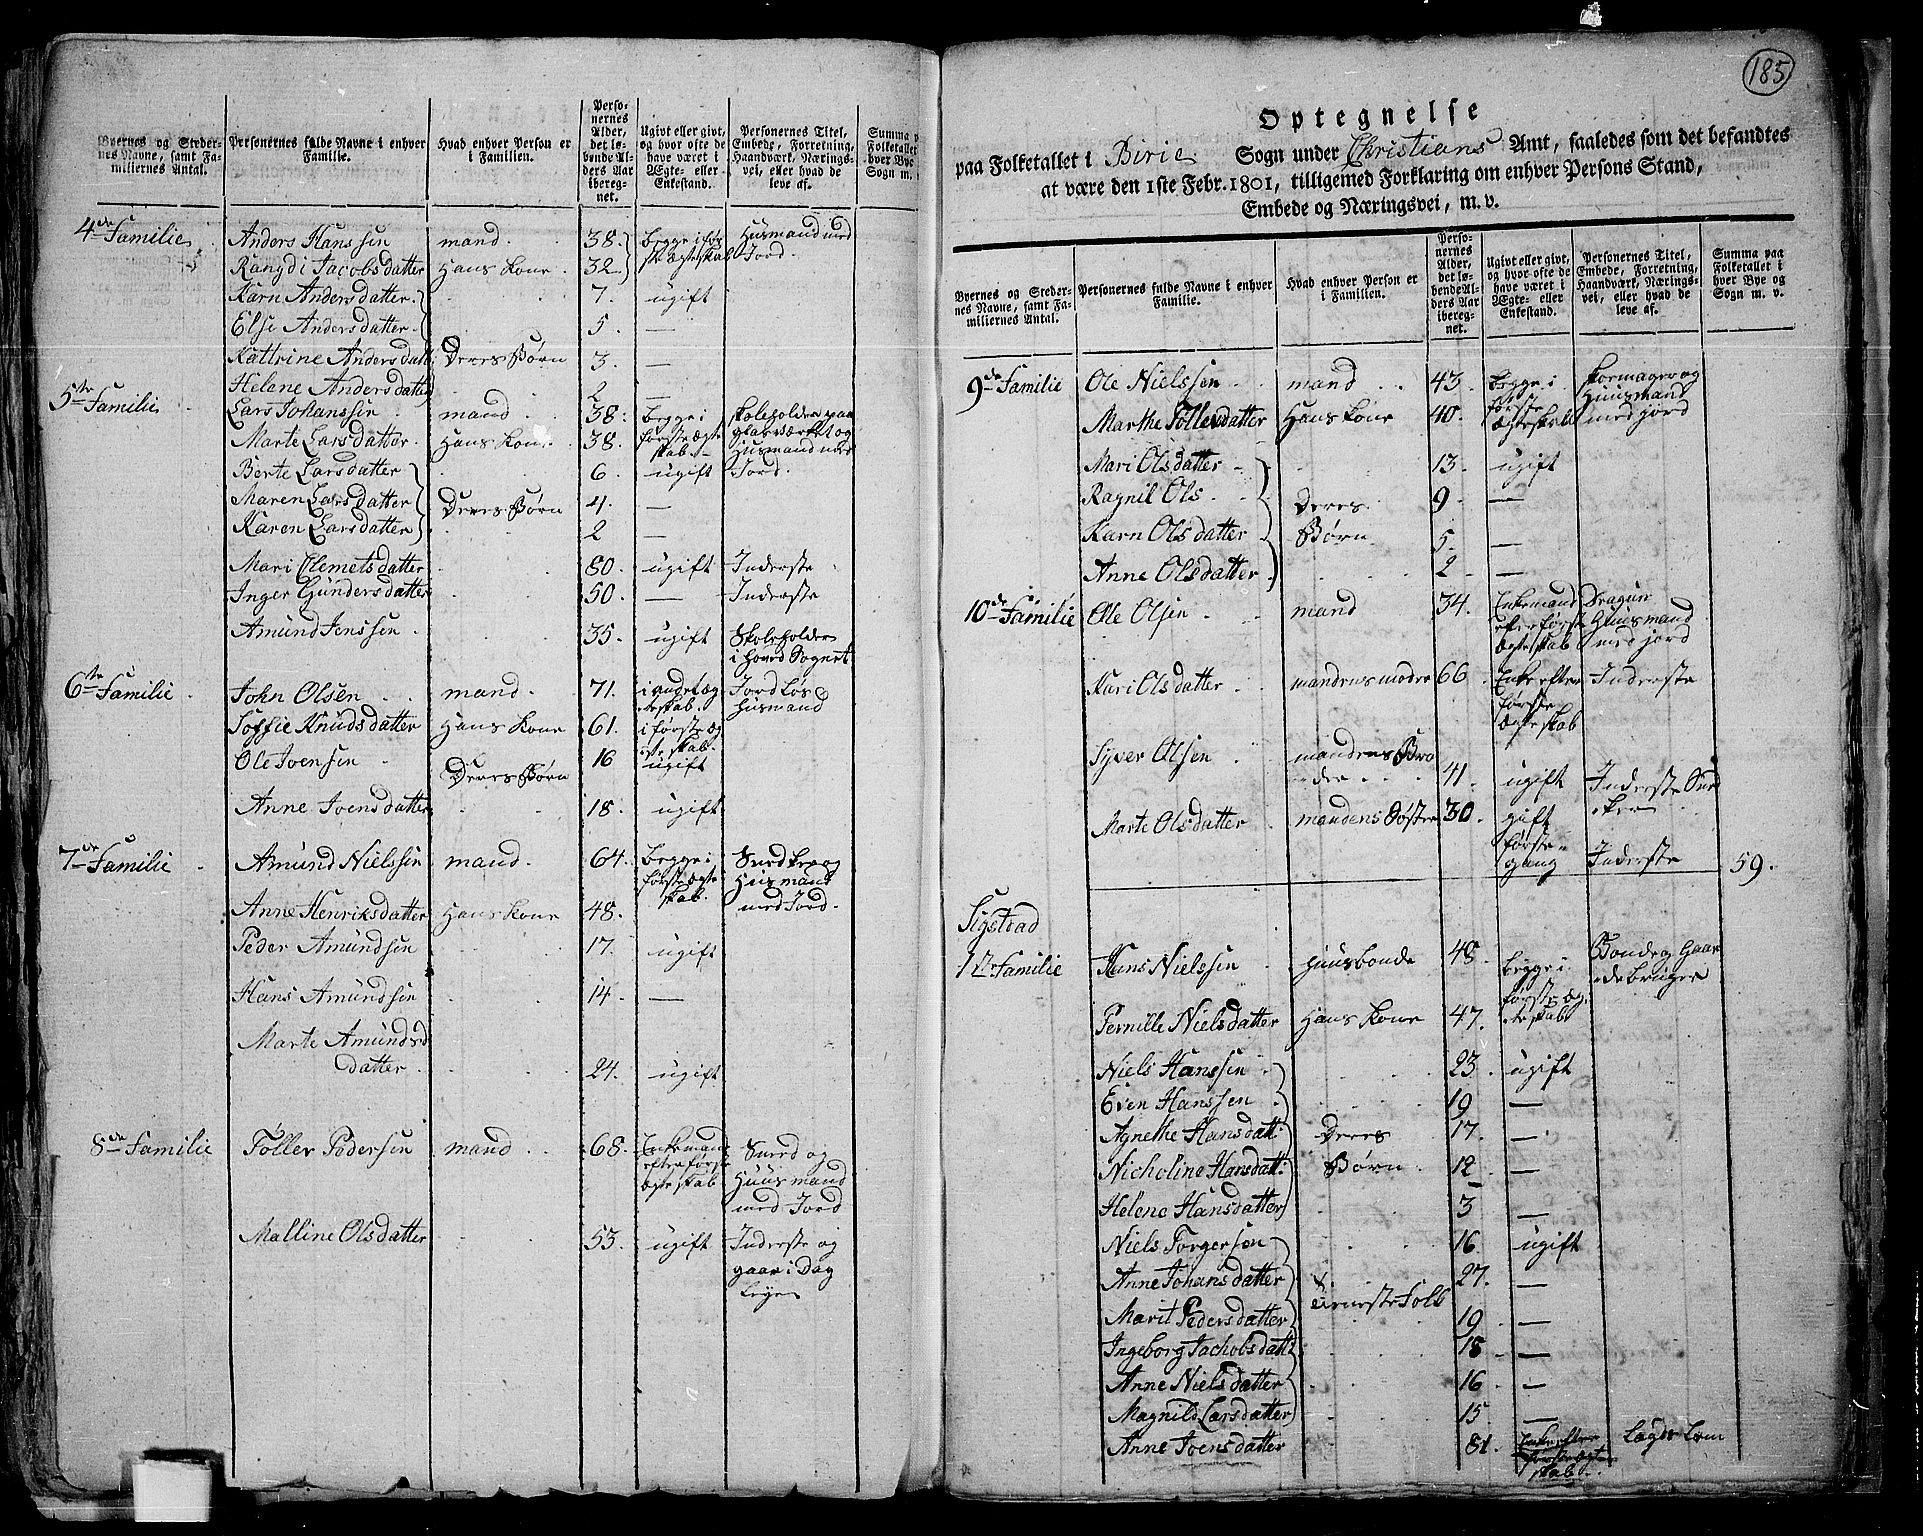 Byernes og Steder-
nes Navne, samt Fa-
miliernes Antal.
Personernes fulde Navne i enhver
Familie.
Hvad enhver Person er
i Familien.
Perso-
nernes
Alder,
det lø-
bende Al-
ders Aar
ibereg-
net.
Ugivt eller givt,
og hvor ofte de
have været i
Ægte- eller
Enkestand.
Personernes Titel,
Embede, Forretning,
Haandværk, Nærings-
vei, eller hvad de
leve af.
Summa p
Folketallet
hver Bye
Sogn m.
4de Familie Anders Hanssen mand. 38. begge i før- Husmand med
Rangdi Jacobsdatter Hans Kone. 32. ste Ægteskab Jord.
Karn Andersdatter. 7. ugift
Else Andersdatter. 5. —
Kattrine Andersdatt: Deres Børn 3. —
Helene Andersdatter 2. —
5te Familie Lars Johanssen mand. 38. begge i Skoleholder paa
Marte Larsdatter. Hans Kone. 38. første ægte glasværket og
skab. Husmand med
Berte Larsdatter 6. ugift Jord.
Maren Larsdatter Deres Børn 4. —
Karen Larsdatter 2. —
Mari Clemetsdatter 80. ugift Inderste
Inger Gundersdatter 50. — Inderste
Amund Jenssen 35. ugift Skoleholder
i hoved Sognet
6te Familie John Olsen mand. 71. i andet æg- Jordløs
teskab. husmand
Soffie Knudsdatter Hans Kone 61. i første æg-
te skab.
Ole Joensen Deres Børn 16 ugift
Anne Joensdatter 18. ugift
7de Familie Amund Nielssen mand. 64. begge i Smed og
første ægte Husmand
skab. med Jord.
Anne Henriksdatter Hans Kone 48.
Peder Amundsen 17. ugift
Hans Amundsen 14. —
Marte Amundsd
datter 24. ugift
8de Familie Töller Pedersen mand 68. Enkemand Smed og
efter første Huusmand
ægteskab med Jord
Malline Olsdatter 53. ugift Inderste og
gaar i Dag
Leye
185
Optegnelse
paa Folketallet i Birie Sogn under Christians Amt, saaledes som det befandtes
at være den 1ste Febr. 1801, tilligemed Forklaring om enhver Persons Stand,
Embede og Næringsvei, m. v.
Byernes og Steder-
nes Navne, samt Fa-
miliernes Antal.
Personernes fulde Navne i enhver
Familie.
Hvad enhver Person er
i Familien.
Perso-
nernes
Alder,
det lø-
bende Al-
ders Aar
ibereg-
net.
Ugivt eller givt,
og hvor ofte de
have været i
Ægte- eller
Enkestand.
Personernes Titel,
Embede, Forretning,
Haandværk, Nærings-
vei, eller hvad de
leve af.
Summa paa
Folketallet i
hver Bye og
Sogn m. v.
9de Familie Ole Nielssen mand 43. begge i Skomager og
første Huusmand
Marthe Töllersdatter Hans Kone 40. ægteskab med jord
Mari Olsdatter 13. ugift
Ragnil Ols Deres 9. —
Karn Olsdatter Børn 5. —
Anne Olsdatter 2. —
10de Familie Ole Olsen mand 34. Enkemand Dragun
efter første Huusmand
ægteskab med jord
Kari Olsdatter mandens modre 66. Enke efter Inderste
første
ægteskab
Syver Olsen mandens Bro
der 41. ugift Inderste Sned
ker
Marte Olsdatter mandens Søster 30. gift
første
gang Inderste 59.
Sigstad
1ste Familie Hans Nielssen Huusbonde 48. begge i Bonde og Gaar
første æg- debruger
Pernille Nielsdatter Hans Kone 47. teskab
Niels Hanssen 23. ugift
Even Hanssen 19 —
Agnethe Hansdatt: Deres 17. —
Nicholine Hansdatt: Børn 12 —
Helene Hansdatter 3 —
Niels Torgersen 16 ugift
Anne Johansdatter 27. —
tieneste Folk
Marit Pedersdatter 19 —
Ingeborg Jachobsdatt: 18 —
Anne Nielsdatter 16 —
Magnild Larsdatter 15 —
Anne Joensdatter 81. Enke efter Lægds Lem
første ægte
skab.